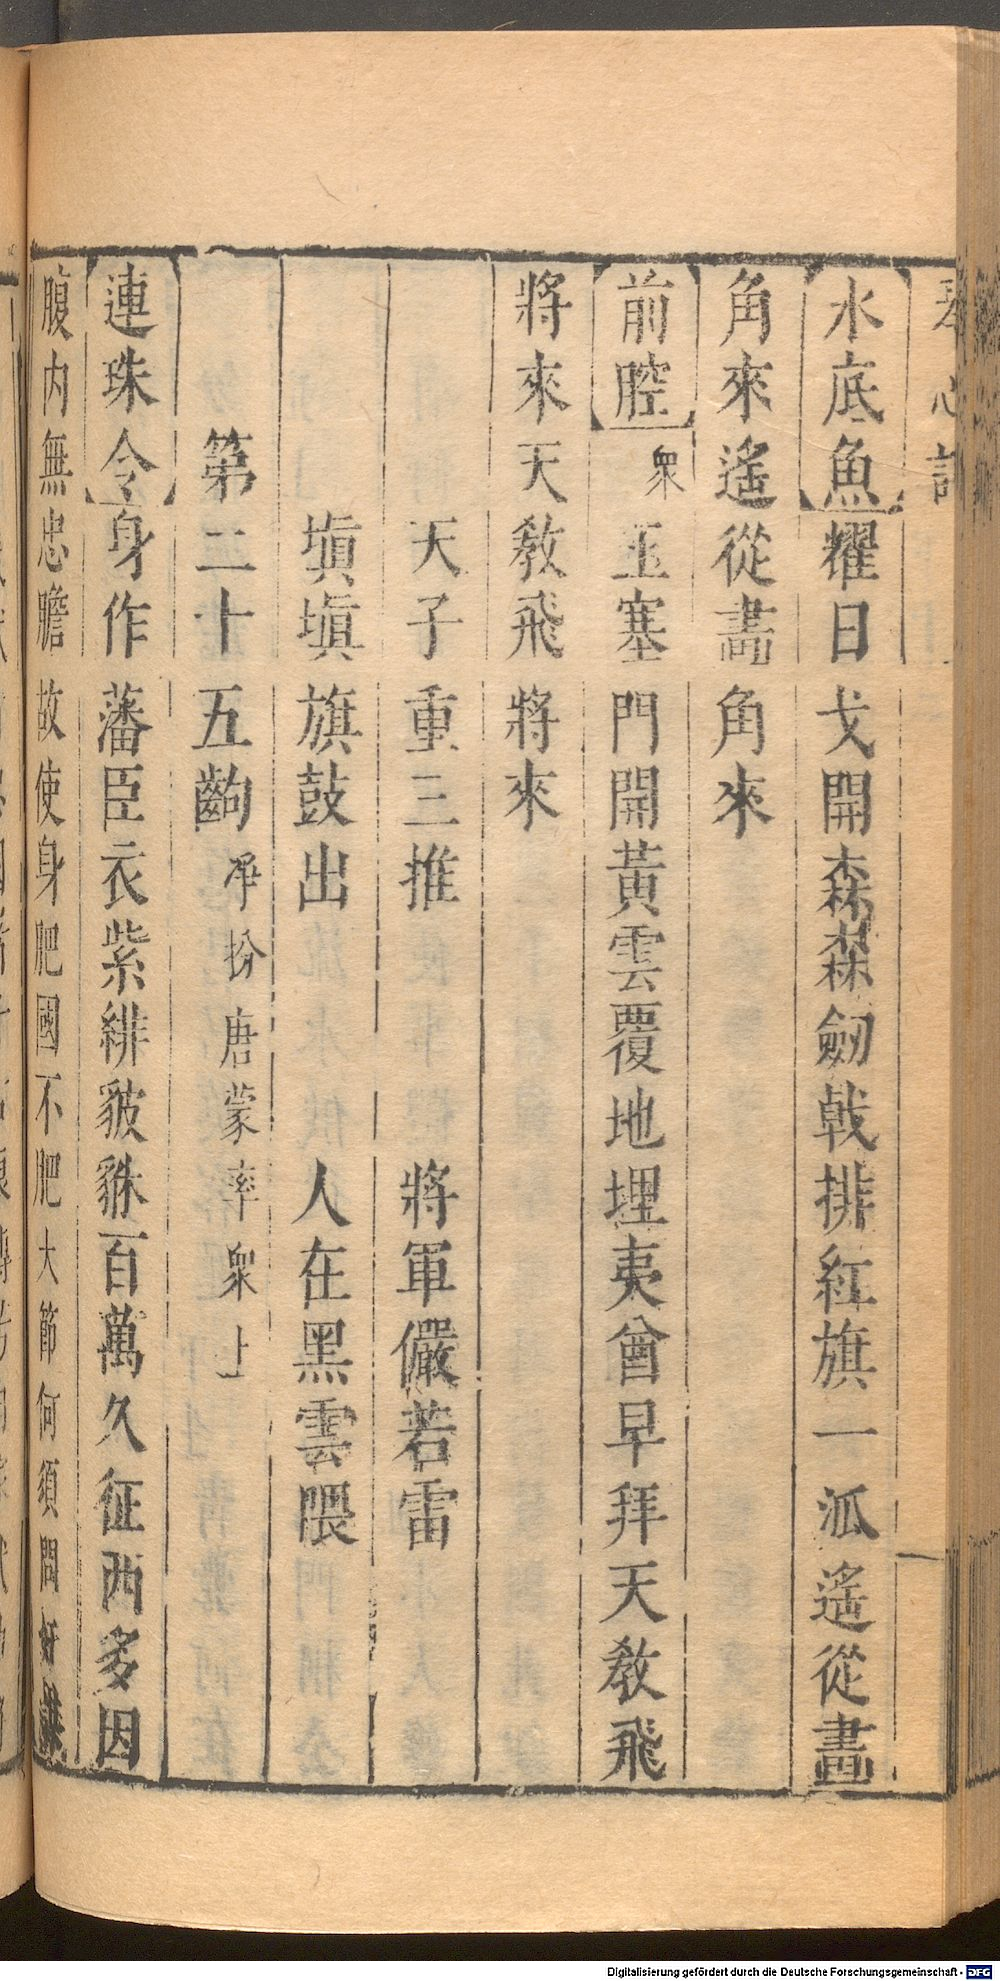 琴心記
水底魚耀日戈開森森劒戟排紅旗一派遙從畫
角來遙從畵角來
前腔衆玉塞門開黃雲覆地埋夷酋早拜天教飛
將來天教飛將來
天子重三推 將軍儼若雷
塡塡旗鼓出 人在黑雲隈
第二十五齣 淨扮唐蒙率衆上
連珠令身作藩臣衣紫緋貔貅百萬久征西多因
腹内無忠膽故使身肥國不肥大節何須問奸謀
Digitalisierung gefördert durch die Deutsche Forschungsgemeinschaft - DFG